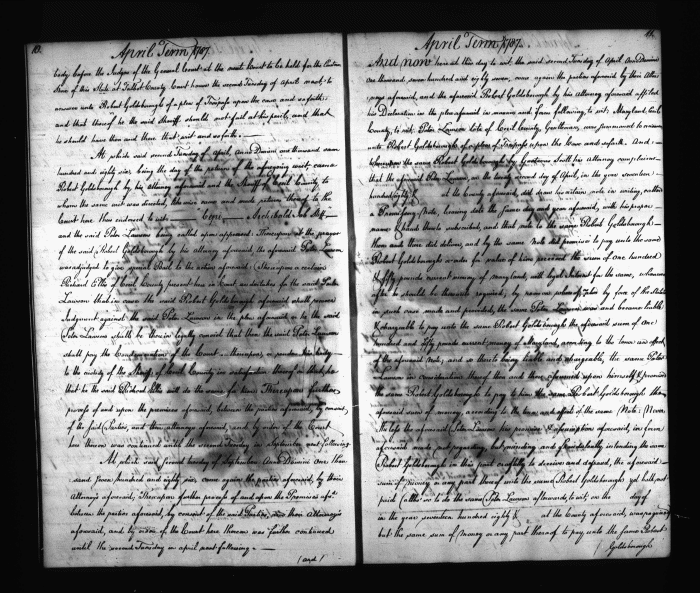 10.
April Term 1787.
body before the Judges of the General Court at the next Court to be held for the Eastern
Shore of this State at Talbot County Court house the second Tuesday of April next to
answer unto Robert Goldsborough of a plea of Trespass upon the case and so forth:
and that thereof he the said Sheriff should not fail at his peril, and that
he should have then and there that writ and so forth. —
At which said second Tuesday of April Anno Domini one thousand seven
hundred and eighty six being the day of the return of the aforegoing writ came
Robert Goldsborough by his attorney aforesaid and the Sheriff of Cecil County to
whom the same writ was directed, likewise came and made return thereof to the
Court here thus endorsed to wit — Cepi — Archibald Job Shff —
and the said Peter Lawson being called upon appeared: Thereupon at the prayer
of the said Robert Goldsborough by his attorney aforesaid, the aforesaid Peter Lawson
was adjudged to give special Bail to the action aforesaid: Thereupon a certain
Richard Ellis of Cecil County present here in Court undertakes for the said Peter
Lawson that in case the said Robert Goldsborough aforesaid shall recover
Judgment against the said Peter Lawson in the plea aforesaid or to the said
Peter Lawson shall be thereon legally convict that then the said Peter Lawson
shall pay the Condemnation of the Court thereupon, or render his body
to the custody of the Sheriff of Cecil County in satisfaction thereof or that
that he the said Richard Ellis will do the same for him: Thereupon further
process of and upon the premises aforesaid, between the parties aforesaid, by consent
of the said Parties, and their attorneys aforesaid, and by order of the Court
here thereon was continued until the second Tuesday in September next following
At which said second tuesday of September Anno Domini one thou-
sand seven hundred and eighty six, came again the parties aforesaid, by their
Attorneys aforesaid, Thereupon further process of and upon the Premises afd.
between the parties aforesaid, by consent of the said Parties, and their Attorneys
aforesaid, and by order of the Court here thereon was further continued
until the second Tuesday in april next following. —
(and)
11.
April Term 1787.
And now here at this day to wit the said second Tuesday of April Anno Domini
one thousand seven hundred and eighty seven, come again the parties aforesaid by their Attor-
neys aforesaid, and the aforesaid Robert Goldsborough by his attorney aforesaid filed
his Declaration in the plea aforesaid in manner and form following, to wit: Maryland, Cecil
County, to wit. Peter Lawson late of Cecil County, Gentleman, was summoned to answer
unto Robert Goldsborough of a plea of Trespass upon the Case and so forth. And
whereupon the same Robert Goldsborough by his attorney complains
that the aforesaid Peter Lawson, on the twenty second day of April, in the year seventeen
hundred eighty at the County aforesaid, did draw his certain note in writing, called
a Promissory Note, bearing date the same day and year aforesaid, with his proper
name & hand thereto subscribed, and that note to the same Robert Goldsborough
then and there did deliver, and by the same Note did promise to pay unto the said
Robert Goldsborough or order for value of him received the sum of one hundred
& fifty pounds current money of Maryland, with legal Interest for the same, whenever
after he should be thereunto required, by reason whereof & also by force of the Statute
in such case made and provided, the same Peter Lawson was and became liable
& chargeable to pay unto the same Robert Goldsborough the aforesaid sum of one
hundred and fifty pounds current money of Maryland, according to the tenor and effect
of the aforesaid Note, and so thereto being liable and chargeable, the same Peter
Lawson in consideration thereof then and there aforesaid upon himself & promised
the same Robert Goldsborough to pay to him the same Robert Goldsborough the
aforesaid sum of money, according to the tenor and effect of the same Note: Never-
theless the aforesaid Peter Lawson his promise & assumption aforesaid, in form
aforesaid made not regarding but intending and fraudulently intending the same
Robert Goldsborough in this part craftily to deceive and defraud, the aforesaid
sum of money or any part thereof to the same Robert Goldsborough yet hath not
paid (altho' so to do the same Peter Lawson afterwards to wit, on the day of
in the year seventeen hundred eighty & at the County aforesaid, was required
but the same sum of Money or any part thereof to pay unto the same Robert
Goldsborough